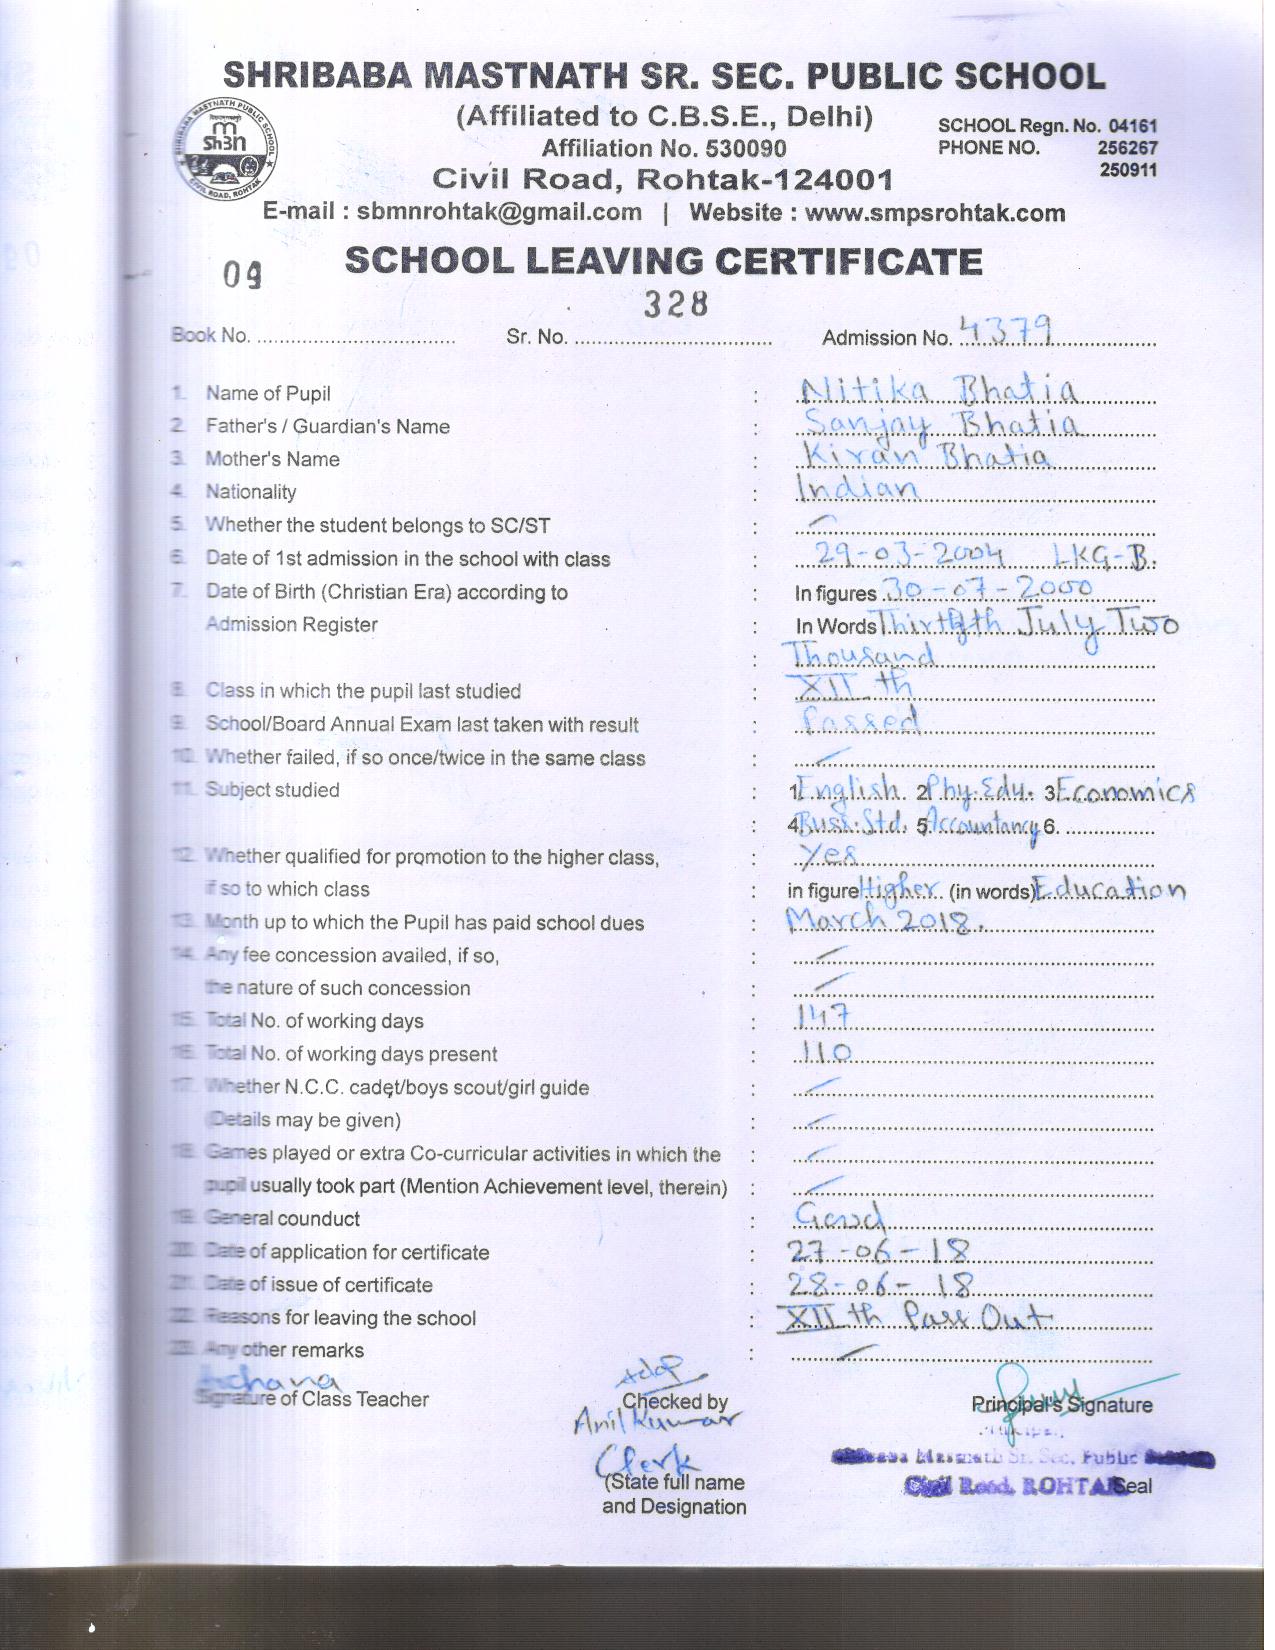 SHRIBABA MASTNATH SR. SEC. PUBLIC SCHOOL
(Affiliated to C.B.S.E., Delhi)
SCHOOL Regn. No. 04161
Affiliation No. 530090
PHONE NO. 256267
250911
Civil Road, Rohtak-124001
E-mail : sbmnrohtak@gmail.com | Website : www.smpsrohtak.com
SCHOOL LEAVING CERTIFICATE
09
328
Book No. Sr. No. Admission No. 4379
1. Name of Pupil : Nitika Bhatia
2. Father's / Guardian's Name : Sanjay Bhatia
3. Mother's Name : Kiran Bhatia
4. Nationality : Indian
5. Whether the student belongs to SC/ST : -
6. Date of 1st admission in the school with class : 29-03-2004 LKG-B.
7. Date of Birth (Christian Era) according to : In figures 30-07-2000
Admission Register : In Words July Two
: Thousand
8. Class in which the pupil last studied : XII th
9. School/Board Annual Exam last taken with result : Passed
10. Whether failed, if so once/twice in the same class : -
11. Subject studied : 1 English. 2 Phy. Edu. 3 Economics
: 4 Buss. Std. 5 Accountancy 6.
12. Whether qualified for promotion to the higher class, : Yes
if so to which class : in figure Higher (in words) Education
13. Month up to which the Pupil has paid school dues : March 2018.
14. Any fee concession availed, if so, : -
the nature of such concession : -
15. Total No. of working days : 147
16. Total No. of working days present : 110
17. Whether N.C.C. cadet/boys scout/girl guide : -
(Details may be given) : -
18. Games played or extra Co-curricular activities in which the : -
pupil usually took part (Mention Achievement level, therein) : -
19. General counduct : Good
20. Date of application for certificate : 27-06-18
21. Date of issue of certificate : 28-06-18
22. Reasons for leaving the school : XII th Pass Out
23. Any other remarks : -
Signature of Class Teacher Checked by Principal's Signature
Anil Kumar
Principal
Clerk
Sr. Sec. Public
(State full name Civil Road, ROHTAK Seal
and Designation